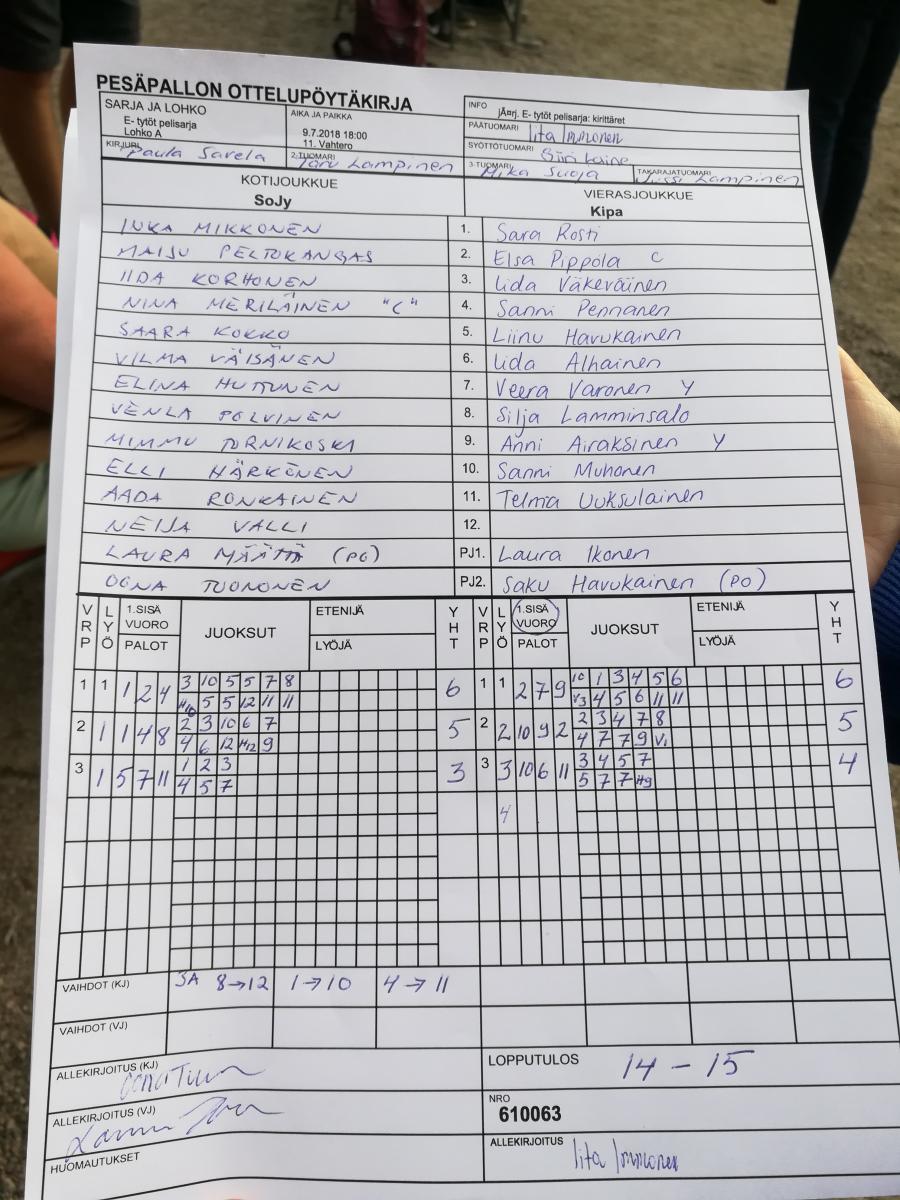 PESÄPALLON OTTELUPÖYTÄKIRJA
SARJA JA LOHKO
E- tytöt pelisarja
Lohko A
AIKA JA PAIKKA
9.7.2018 18:00
11. Vahtero
INFO
jÄ¤rj. E- tytöt pelisarja: kirittäret
PÄÄTUOMARI Iita Immonen
SYÖTTÖTUOMARI
KIRJURI Paula Savela
2-TUOMARI Taru Lampinen
3-TUOMARI Mika Suoja
TAKARAJATUOMARI Jussi Lampinen
KOTIJOUKKUE
SoJy
VIERASJOUKKUE
Kipa
IUKA MIKKONEN 1. Sara Rosti
MAIJU PELTOKANGAS 2. Elsa Pippola C
IIDA KORHONEN 3. Iida Väkeväinen
NINA MERILÄINEN "C" 4. Sanni Pennanen
SAARA KOKKO 5. Liinu Havukainen
VILMA VÄISÄNEN 6. Iida Alhainen
ELINA HUTTUNEN 7. Veera Varonen Y
VENLA POLVINEN 8. Silja Lamminsalo
MIMMU TORNIKOSKI 9. Anni Airaksinen Y
ELLI HÄRKÖNEN 10. Sanni Muhonen
AADA RONKAINEN 11. Telma Uuksulainen
NEIJA VALLI 12.
LAURA MÄÄTTÄ (PO) PJ1. Laura Ikonen
OONA TUONONEN PJ2. Saku Havukainen (PO)
VRP LYÖ 1.SISÄ VUORO PALOT JUOKSUT ETENIJÄ LYÖJÄ YHT VRP LYÖ 1.SISÄ VUORO PALOT JUOKSUT ETENIJÄ LYÖJÄ YHT
1 1 1 2 4 3 10 5 5 7 8 6 1 1 2 7 9 10 1 3 4 5 6 6
H10 5 5 12 11 11 V3 4 5 6 11 11
2 1 1 4 8 2 3 10 6 7 5 2 2 10 9 2 2 3 4 7 8 5
4 6 12 H12 9 4 7 7 9 V1
3 1 5 7 11 1 2 3 3 3 3 10 6 11 3 4 5 7 4
4 5 7 5 7 7 H9
4
VAIHDOT (KJ) 3A 8→12 1→10 4→11
VAIHDOT (VJ)
ALLEKIRJOITUS (KJ)
LOPPUTULOS 14 - 15
ALLEKIRJOITUS (VJ)
NRO
610063
HUOMAUTUKSET
ALLEKIRJOITUS Iita Immonen